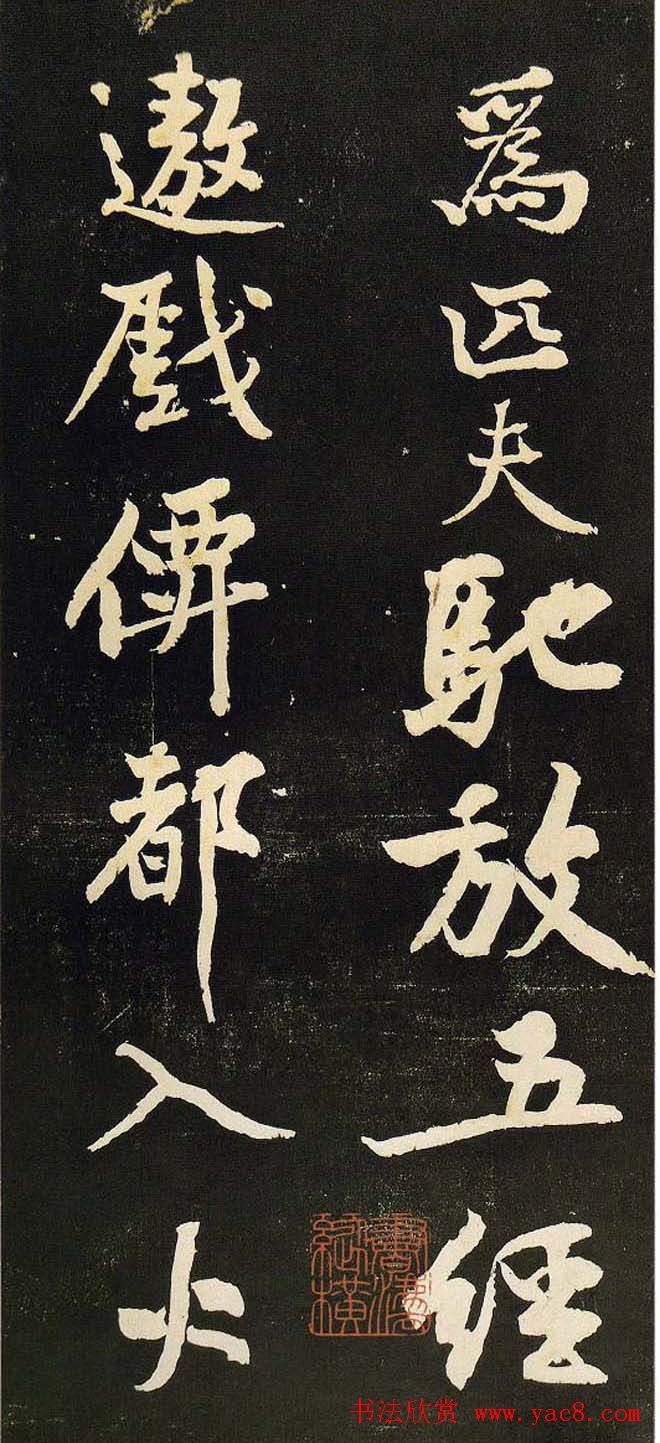 爲匹夫馳放五經
遨戲僊都入火
书法欣赏 www.yac8.com